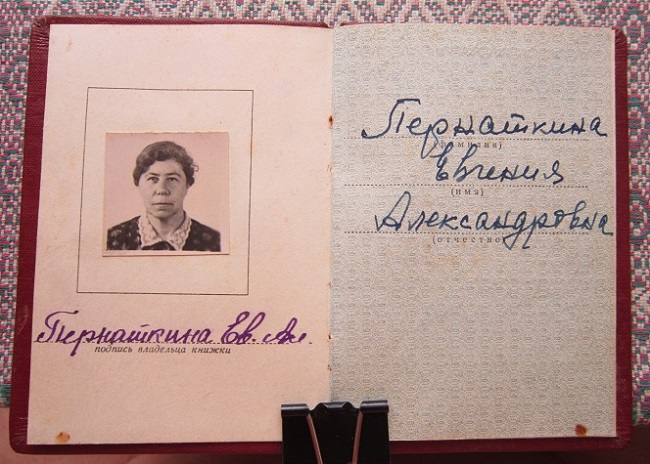 Пернаткина Ев. Ал.
подпись владельца книжки
Пернаткина
(фамилия)
Евгения
(имя)
Александровна
(отчество)